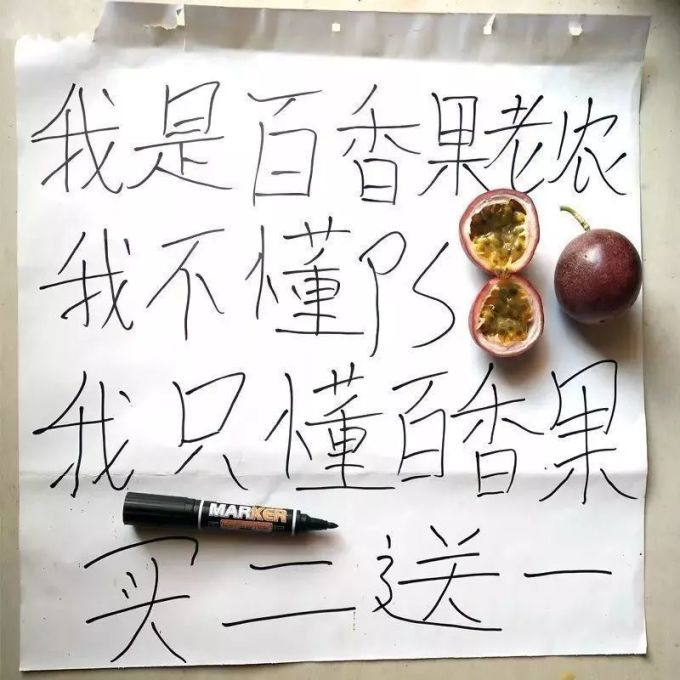 我是百香果老农
我不懂PS
我只懂百香果
MARKER
买二送一